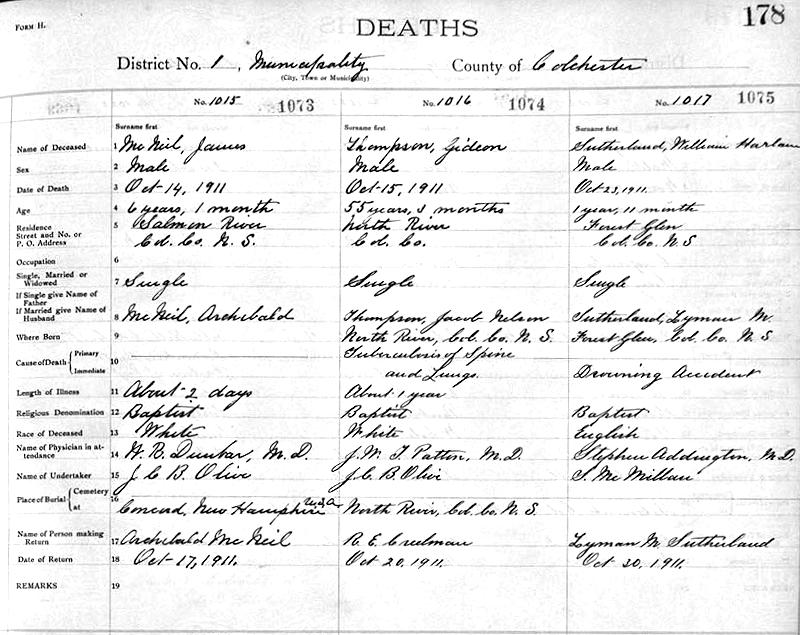 FORM H.
DEATHS
178
District No. 1, Municipality County of Colchester
(City, Town or Municipality)
No. 1015 1073 No. 1016 1074 No. 1017 1075
Surname first Surname first Surname first
Name of Deceased 1 McNeil, James Thompson, Gideon Sutherland, William Harlan
Sex 2 Male Male Male
Date of Death 3 Oct 14, 1911 Oct 15, 1911 Oct 23, 1911.
Age 4 6 years, 1 month 55 years, 3 months 1 year, 11 month
Residence 5 Salmon River North River Forest Glen
Street and No. or
P. O. Address Col. Co. N. S. Col. Co. Col. Co. N. S
Occupation 6
Single, Married or
Widowed 7 Single Single Single
If Single give Name of
Father
If Married give Name of
Husband 8 McNeil, Archibald Thompson, Jacob Nelson Sutherland, Lyman M.
Where Born 9 North River, Col. Co. N. S. Forest Glen, Col. Co. N. S
Cause of Death Primary Immediate 10 Tuberculosis of Spine
and Lungs. Drowning Accident
Length of Illness 11 About 2 days About 1 year
Religious Denomination 12 Baptist Baptist Baptist
Race of Deceased 13 White White English
Name of Physician in attendance 14 W. R. Dunbar, M. D. J. W. T. Patton, M. D. Stephen Addington, M.D.
Name of Undertaker 15 J C B. Olive J. C. B. Olive S. McMillan
Place of Burial Cemetery at 16 New Hampshire U.S.A North River, Col. Co. N. S.
Name of Person making
Return 17 Archibald McNeil R. E. Creelman Lyman M. Sutherland
Date of Return 18 Oct 17, 1911. Oct 20, 1911. Oct 30, 1911.
REMARKS 19